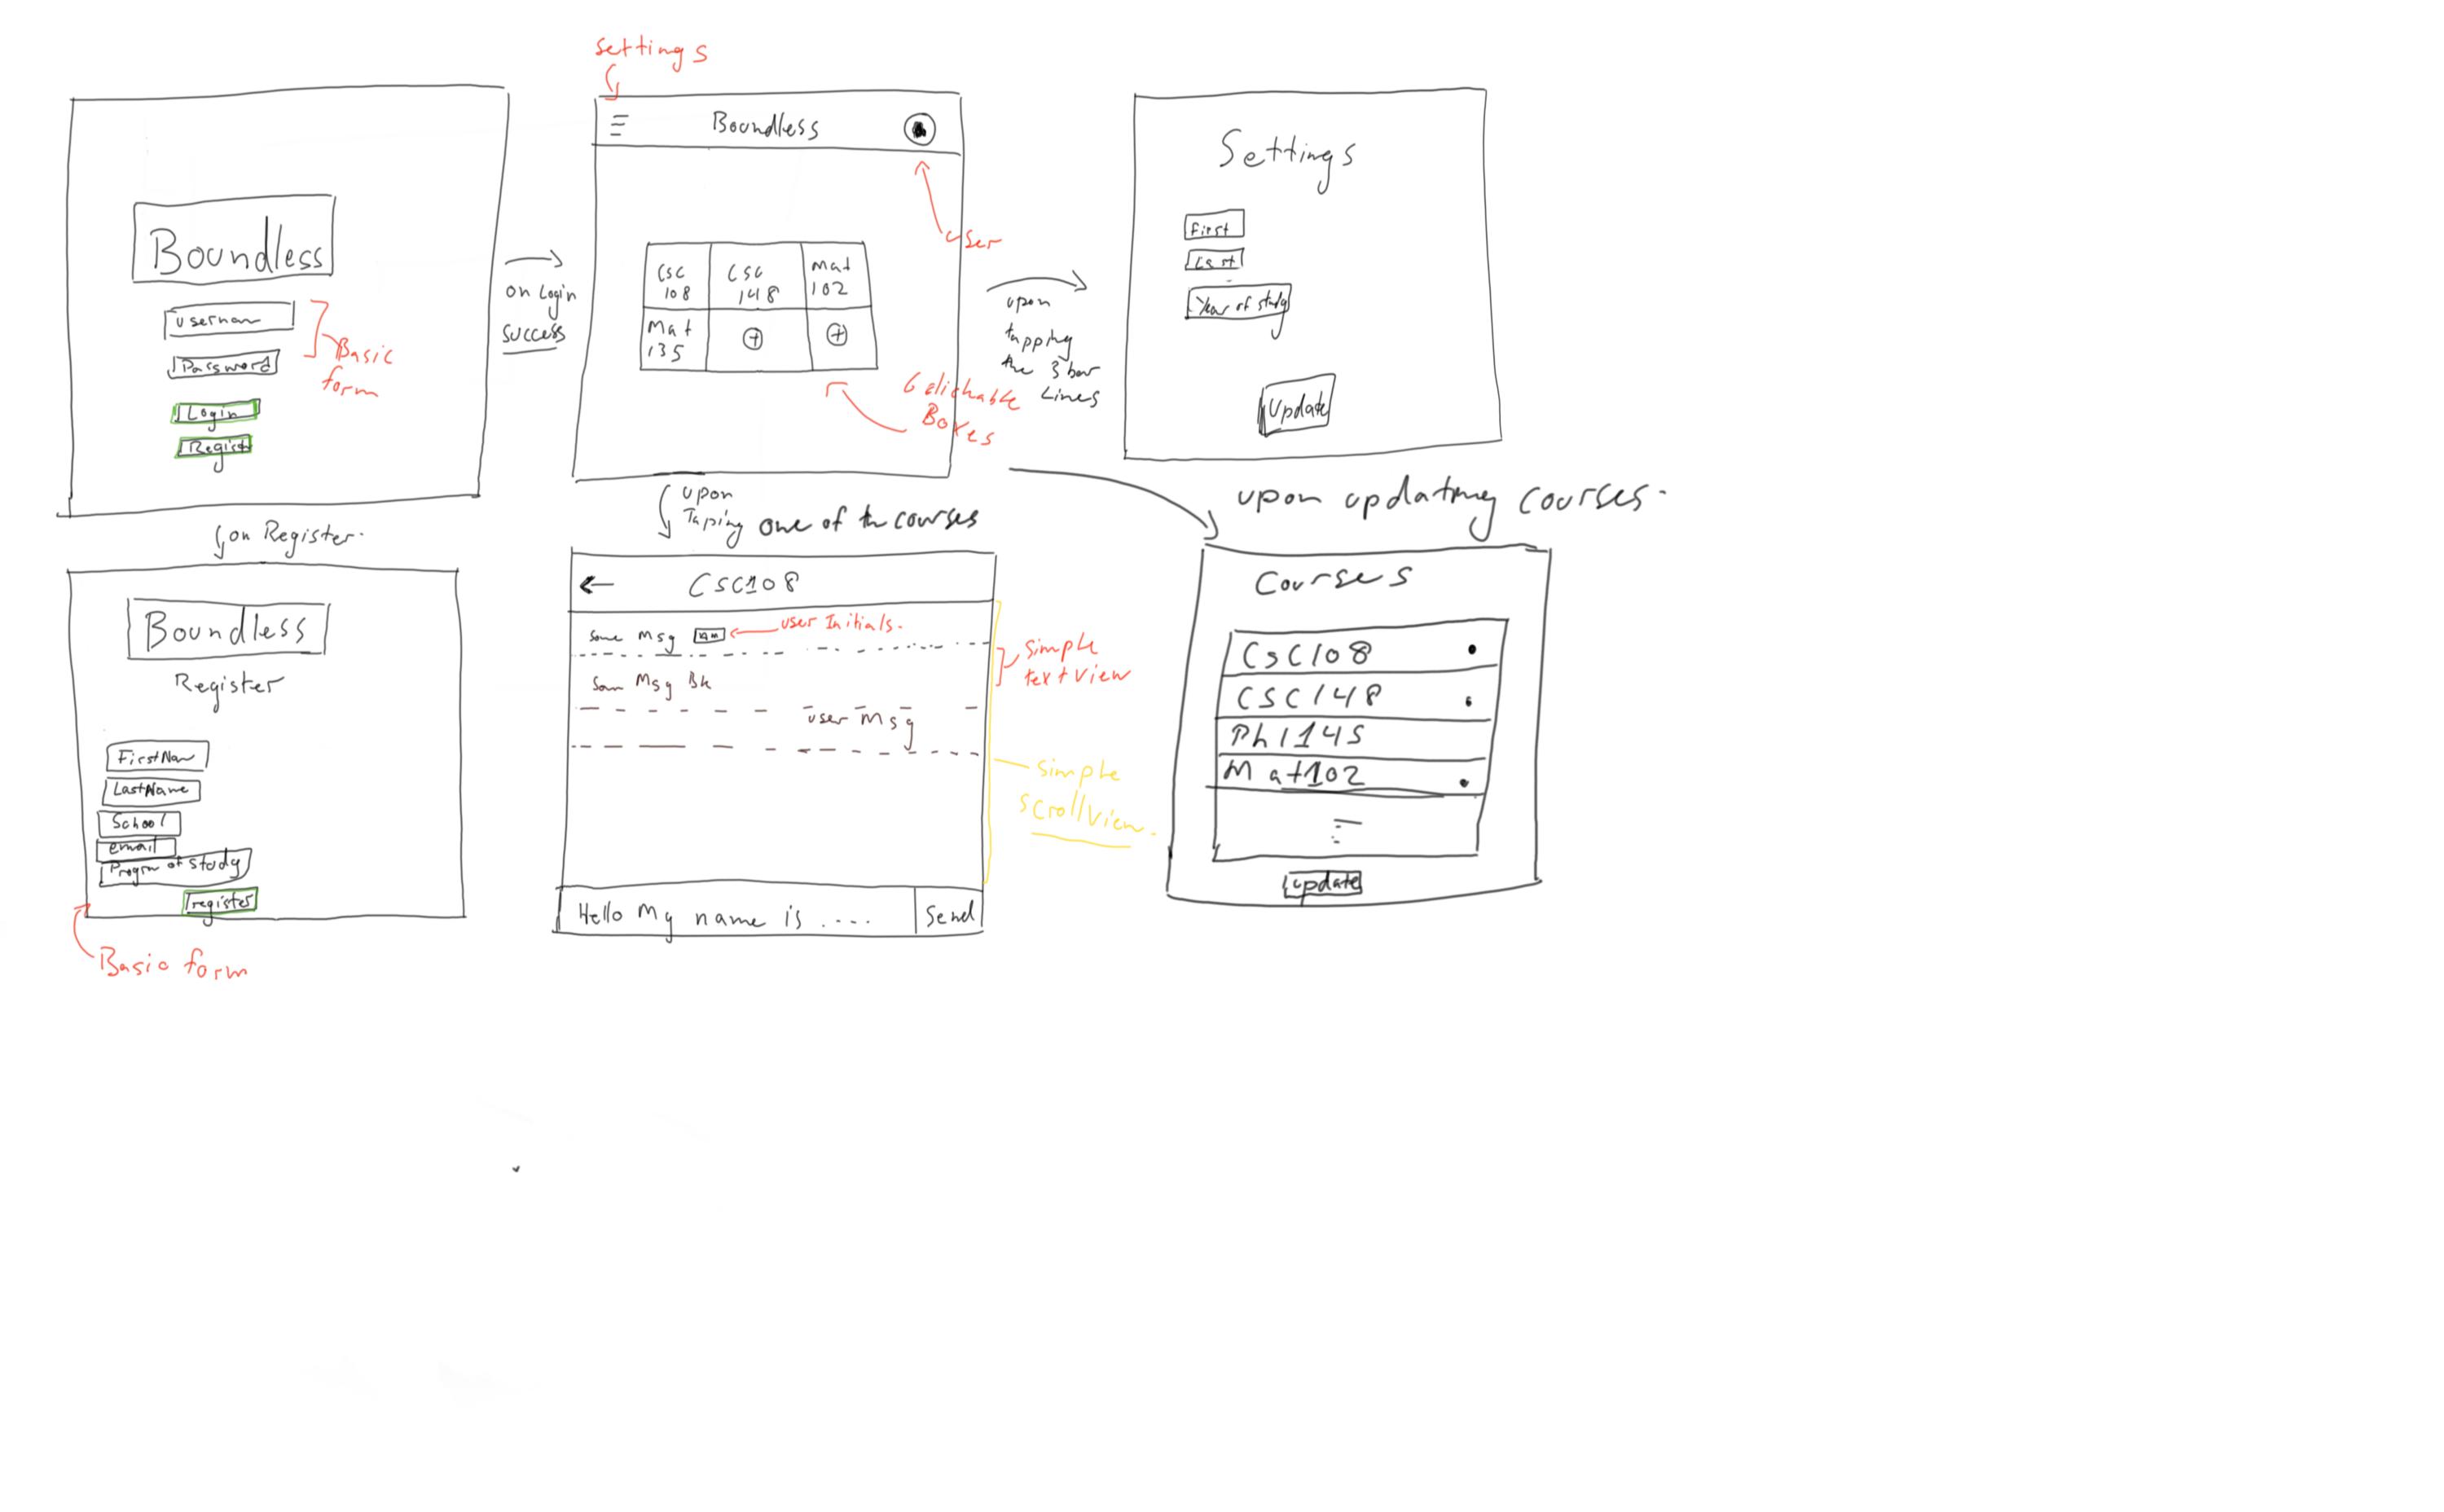 settings
Boundless
usernam
Password
Basic
form
Login
Regist
on Login
success
Boundless
user
Csc
108
Csc
148
Mat
102
Mat
135
+
+
6 clickable
Boxes
upon
tapping
the 3 bar
Lines
Settings
First
Last
Year of study
Update
on Register.
Boundless
Register
FirstNam
LastName
School
email
Progrm of study
register
Basic form
upon
Taping one of th courses
←
CSC108
some Msg
user Initials.
simple
textview
Som Msg BK
user Msg
simple
scrollview.
Hello My name is ....
Send
upon updating courses.
Courses
CSC108
CSC148
Phl145
Mat102
update